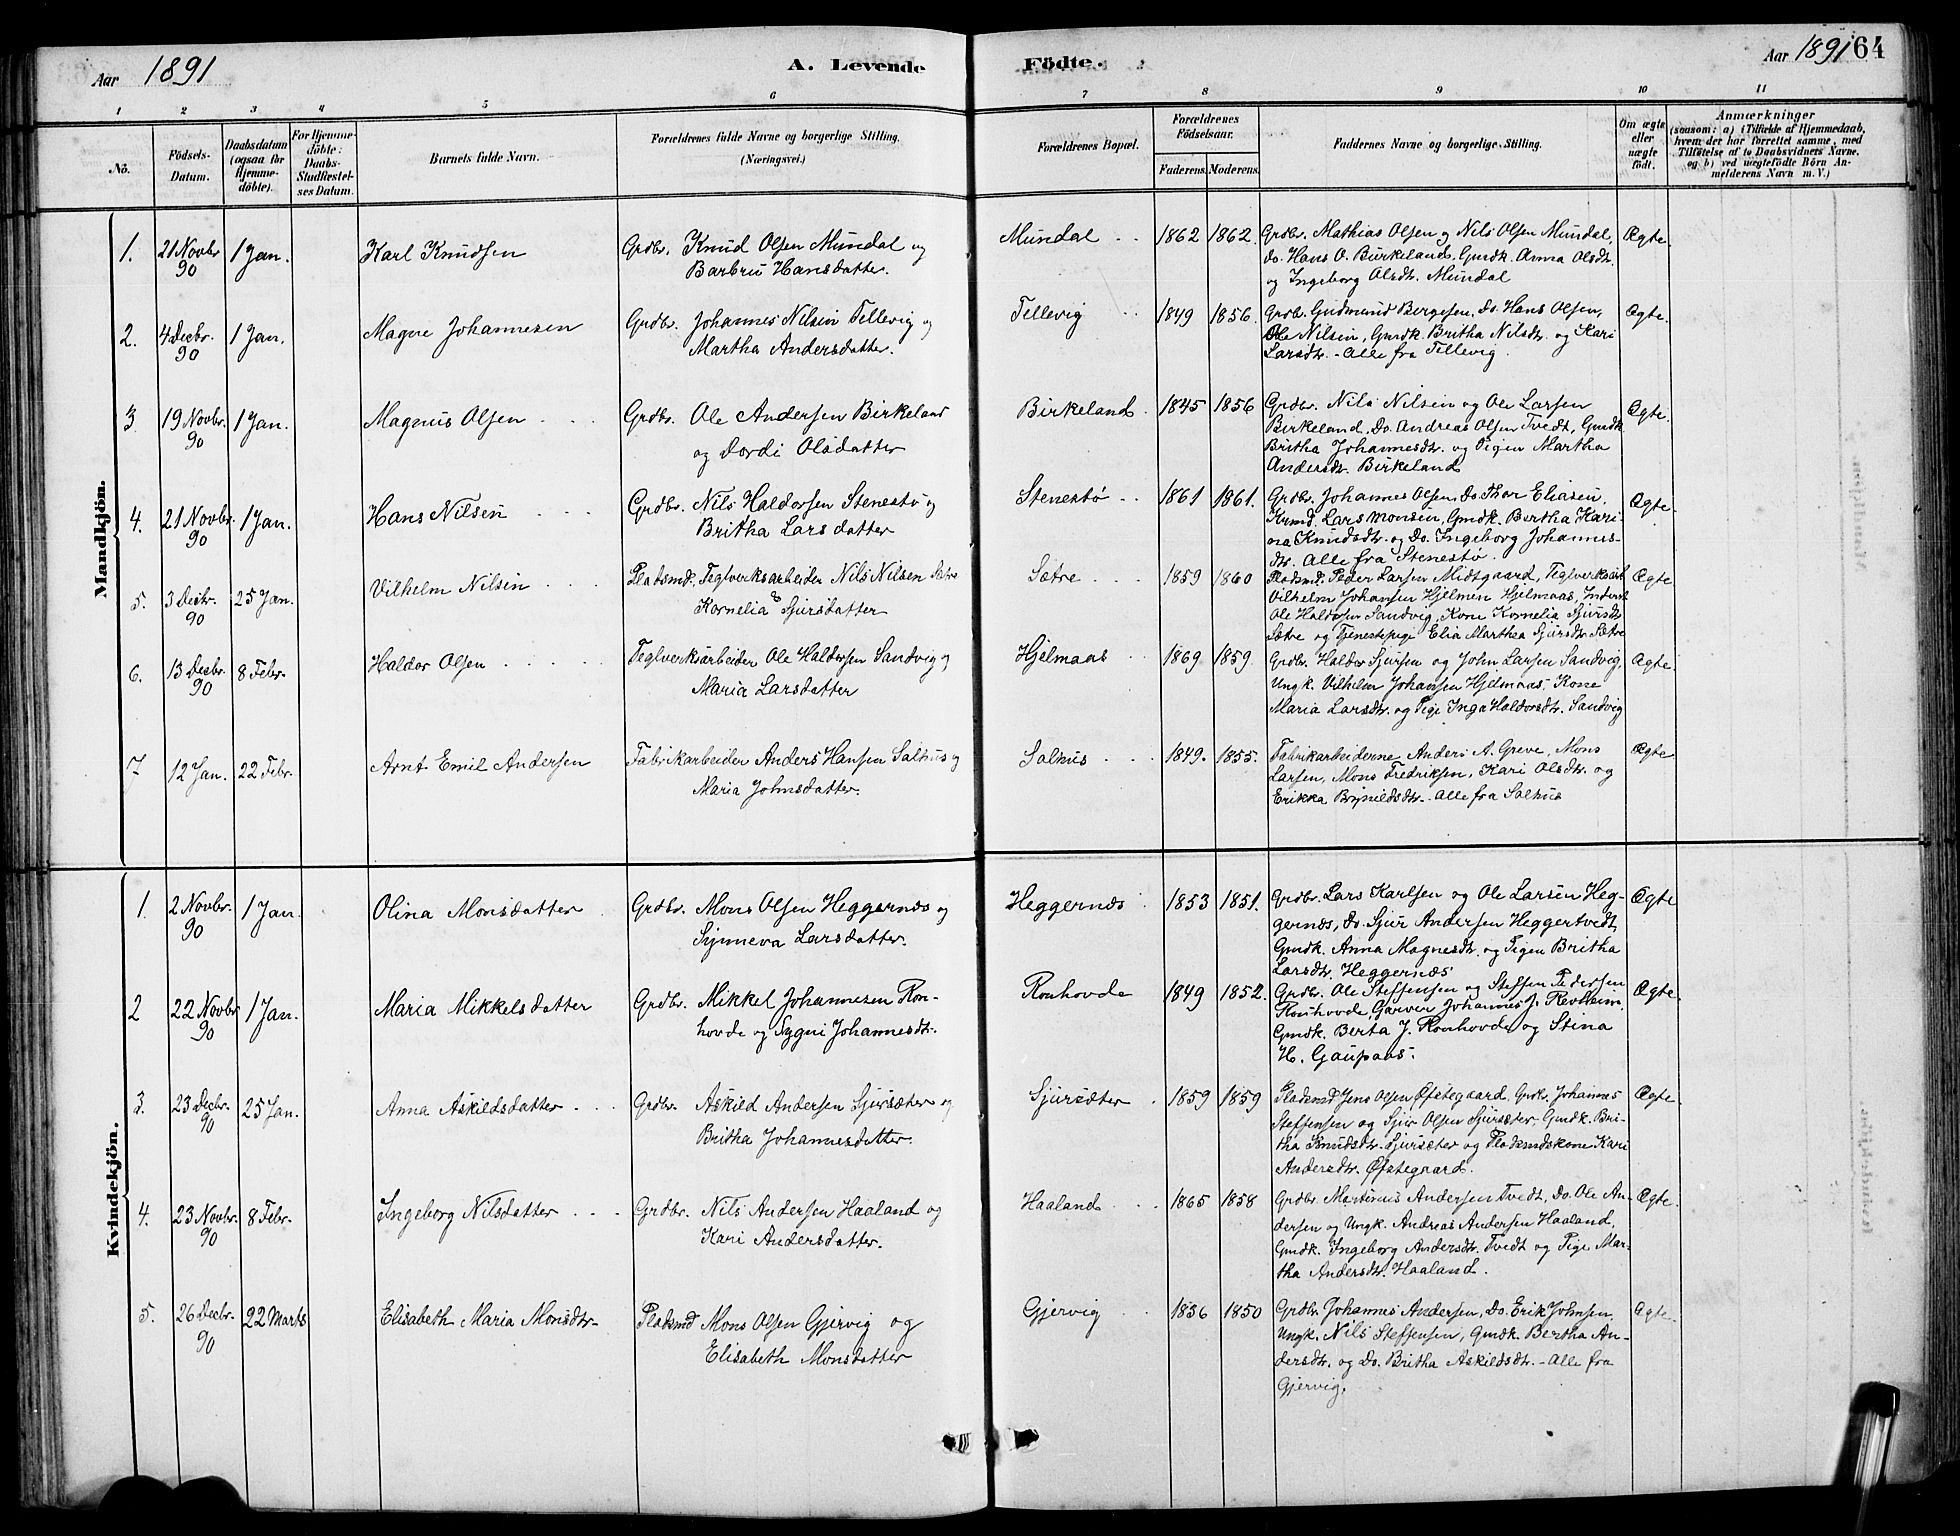 Aar 1891
A. Levende Födte.
Aar 1891 64
1 2 3 4 5 6 7 8 9 10 11
No.
Födsels-Datum.
Daabsdatum (ogsaa for Hjemmedöbte).
For Hjemmedöbte: Daabs-Stadfæstelses Datum.
Barnets fulde Navn.
Forældrenes fulde Navne og borgerlige Stilling.
(Næringsvei.)
Forældrenes Bopæl.
Forældrenes Födselsaar.
Faderens. Moderens.
Faddernes Navne og borgerlige Stilling.
Om ægte eller uægte födt.
Anmærkninger
(saasom: a) i Tilfælde af Hjemmedaab, hvem der har forrettet samme, med Tilföielse af to Daabsvidners Navne, og b) ved uægtefödte Börn Anmelderens Navn m. V.)
Mandkjön.
1. 21 Novbr 90 1 Jan. Karl Knudsen
Grdbr. Knud Olsen Mundal og
Barbru Hansdatter.
Mundal 1862 1862.
Grdbr. Mathias Olsen og Nils Olsen Mundal,
Do. Hans O. Birkeland, Gmdk. Anna Olsdtr.
og Ingeborg Olsdtr. Mundal
Ægte.
2. 4 Decbr. 90 1 Jan. Magne Johannesen
Grdbr. Johannes Nilsen Tellevig og
Martha Andersdatter.
Tellevig 1849 1856.
Grdbr. Gudmund Bergesen, Do. Hans Olsen,
Ole Nilsen, Gmdk. Britha Nilsdtr. og Kari
Larsdtr. - Alle fra Tellevig.
Ægte.
3 19 Novbr. 90 1 Jan. Magnus Olsen
Grdbr. Ole Andersen Birkeland
og Dordi Olsdatter
Birkeland. 1845 1856
Grdbr. Nils Nilsen og Ole Larsen
Birkeland, Do. Andreas Olsen Tvedt, Gmdk.
Britha Johannesdtr. og Pigen Martha
Andersdtr. Birkeland
Ægte.
4. 21 Novbr. 90 1 Jan. Hans Nilsen
Grdbr. Nils Haldorsen Stenestø og
Britha Larsdatter
Stenestø 1861 1861.
Grdbr. Johannes Olsen, Do. Thor Eliasen,
Lars Monsen, Gmdk. Bertha Kari-
na Knudsdtr. og Do. Ingeborg Johannes-
dtr. Alle fra Stenestø.
Ægte.
5. 3 Decbr. 90 25 Jan. Vilhelm Nilsen
Pladsmd. Teglverksarbeider Nils Nilsen Sætre
& Kornelia Sjursdatter
Sætre 1859 1860
Pladsmd. Peder Larsen Midtgaard, Teglverksarb.
Vilhelm Johansen Hjelmen Hjelmaas, Inderst
Ole Haldorsen Sandvig, Kone Kornelia Sjursdtr.
Sætre og Tjenestepige Elia Marthea Sjursdtr. Sætre
Ægte
6. 13 Decbr. 90 8 Febr. Haldor Olsen
Teglverksarbeider Ole Haldorsen Sandvig og
Maria Larsdatter
Hjelmaas 1869 1859.
Grdbr. Haldor Sjursen og John Larsen Sandvig,
Ungk. Vilhelm Johansen Hjelmaas, Kone
Maria Larsdtr. og Pige Inga Haldorsdtr. Sandvig
Ægte
7 12 Jan. 22 Febr. Arnt Emil Andersen
Fabrikarbeider Anders Hansen Salhus og
Maria Johnsdatter.
Salhus 1849. 1855.
Fabrikarbeiderne Anders A. Greve, Mons
Larsen, Mons Fredriksen, Kari Olsdtr. og
Erikka Brynildsdtr. - Alle fra Salhus
Ægte
Kvindekjön.
1. 2 Novbr. 90 1 Jan. Olina Monsdatter
Grdbr. Mons Olsen Heggernæs og
Synneva Larsdatter.
Heggernæs 1853 1851.
Grdbr. Lars Karlsen og Ole Larsen Heg-
gernæs, Do. Sjur Andersen Heggertvedt,
Gmdk. Anna Magnesdtr. og Pigen Britha
Larsdtr. Heggernæs
Ægte
2 22 Novbr 90 1 Jan. Maria Mikkelsdatter
Grdbr. Mikkel Johannesen Ron-
hovde og Sygni Johannesdtr.
Ronhovde 1849 1852.
Grdbr. Ole Steffensen og Steffen Pedersen
Ronhovde, Garver Johannes J.
Gmdk. Berta J. Ronhovde og Stina
H. Gaupaas.
Ægte.
3. 23 Decbr. 90 25 Jan. Anna Askildsdatter
Grdbr. Askild Andersen Sjursæter og
Britha Johannesdatter.
Sjursæter 1859 1859
Pladsmd Jens Olsen Øfstegaard, Grdbr. Johannes
Steffensen og Sjur Olsen Sjursæter, Gmdk. Bri-
tha Knudsdtr. Sjursæter og Pladsmdskone Kari
Andersdtr. Øfstegaard.
Ægte.
4. 23 Novbr. 90 8 Febr. Ingeborg Nilsdatter
Grdbr. Nils Andersen Haaland og
Kari Andersdatter.
Haaland 1865 1858
Grdbr. Martinus Andersen Tvedt, Do. Ole An-
dersen og Ungk. Andreas Andersen Haaland,
Gmdk. Ingeborg Andersdtr. Tvedt og Pige Mar-
tha Andersdtr. Haaland.
Ægte.
5. 26 Decbr. 90 22 Marts Elisabeth Maria Monsdtr.
Pladsmd Mons Olsen Gjervig og
Elisabeth Monsdatter
Gjervig 1856 1850
Grdbr. Johannes Andersen, Do. Erik Johnsen,
Ungk. Nils Steffensen, Gmdk. Bertha An-
dersdtr. og Do. Britha Askildsdtr. - Alle fra
Gjervig.
Ægte.